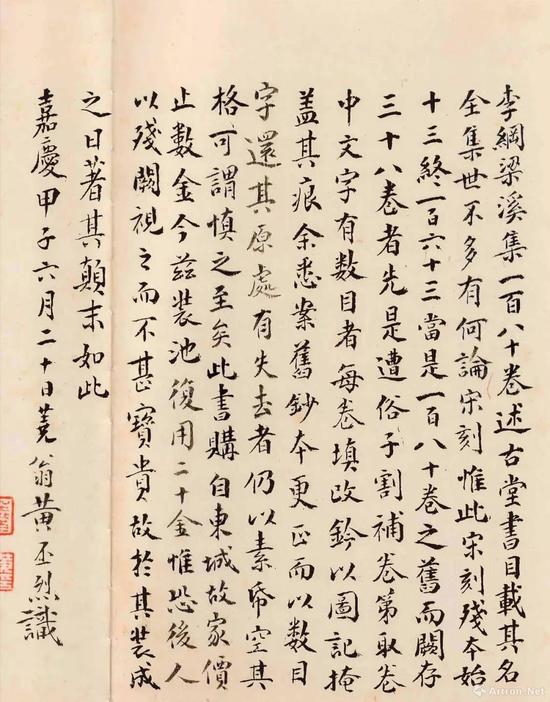 李綱梁溪集一百八十卷述古堂書目載其名
全集世不多有何論宋刻惟此宋刻殘本始
十三終一百六十三當是一百八十卷之舊而闕存
三十八卷者先是遭俗子割補卷第取卷
中文字有数目者每卷填改鈐以圖記掩
盖其痕余悉案舊鈔本更正而以数目
字還其原處有失去者仍以素帋空其
格可謂慎之至矣此書購自東城故家價
止數金今茲裝池復用二十金惟恐後人
以殘闕視之而不甚寶貴故於其裝成
之日著其顛末如此
嘉慶甲子六月二十日蕘翁黃丕烈識
Artron.Net